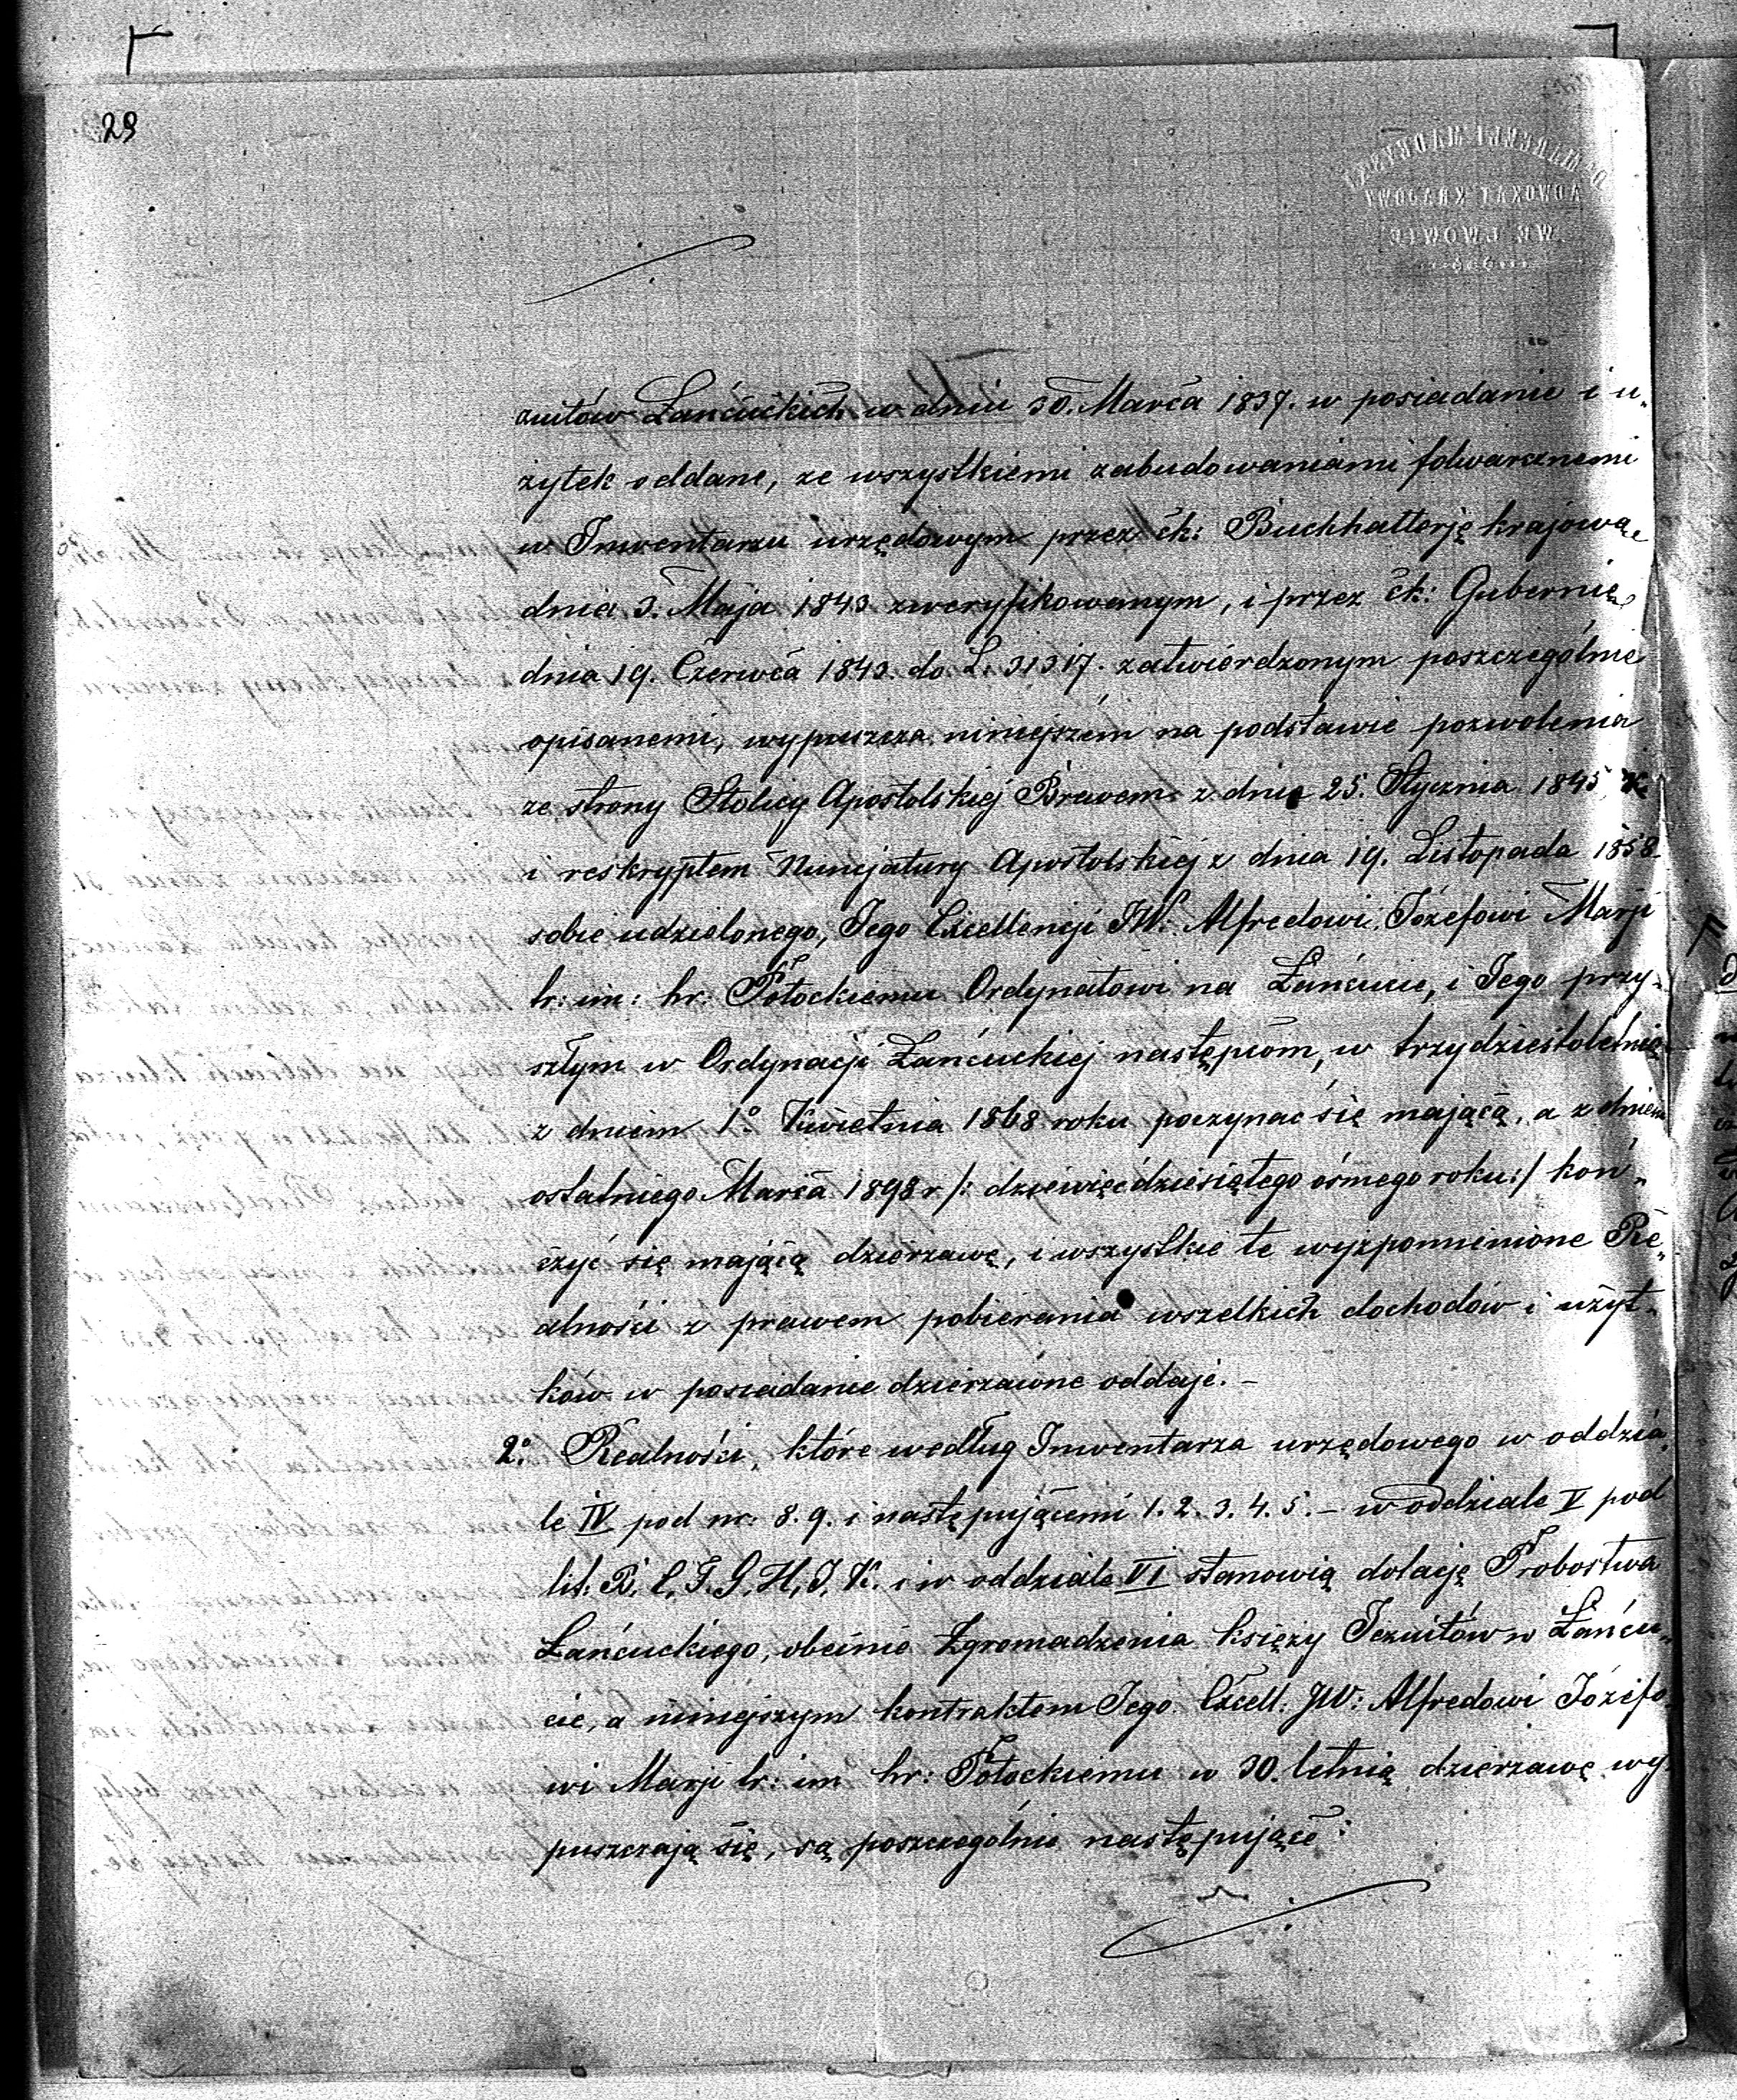 29
zuitów Łańcuckich w dniu 30. Marca 1837. w posiadanie i u„
żytek oddane, ze wszystkiemi zabudowaniami folwarcznemi
w Inwentarzu urzędowym przez ck: Buchhalterję krajową
dnia 3. Maja 1843 zweryfikowanym, i przez ck: Gubernię
dnia 19. Czerwca 1843. do L. 31317. zatwierdzonym poszczególnie
opisanemi, wypuszcza niniejszém na podstawie pozwolenia
ze strony Stolicy Apostolskiej Brevem z dnia 25. Stycznia 1845 r.
i reskryptem Nuncjatury Apostolskiej z dnia 19. Listopada 1858.
sobie udzielonego, Jego Excellencji JW. Alfredowi Józefowi Marji
tr: im: hr: Potockiemu Ordynatowi na Łańcucie, i Jego przy„
szłym w Ordynacji Łańcuckiej następcom, w trzydziestoletnią
z dniem 1º Kwietnia 1868 roku poczynać się mającą, a z dniem
ostatniego Marca 1898 r /: dziewięćdziesiątego ósmego roku:/ koń„
czyć się mającą dzierżawę, i wszystkie te wyżpomnienione Re„
alności z prawem pobierania wszelkich dochodów i użyt„
ków w posiadanie dzierżawne oddaje. –
2º. Realności, które według Inwentarza urzędowego w oddzia„
le IV pod nr: 8. 9. i następującemi 1. 2. 3. 4. 5. – w oddziale V pod
lit. B, C, F. G, H, J, K. i w oddziale VI stanowią dotację Probostwa
Łańcuckiego, obecnie Zgromadzenia księży Jezuitów w Łańcu„
cie, a niniejszym kontraktem Jego Excell. JW: Alfredowi Józefo„
wi Marji tr: im hr: Potockiemu w 30. letnią dzierżawę wy„
puszczają się, są poszczególnie następujące: